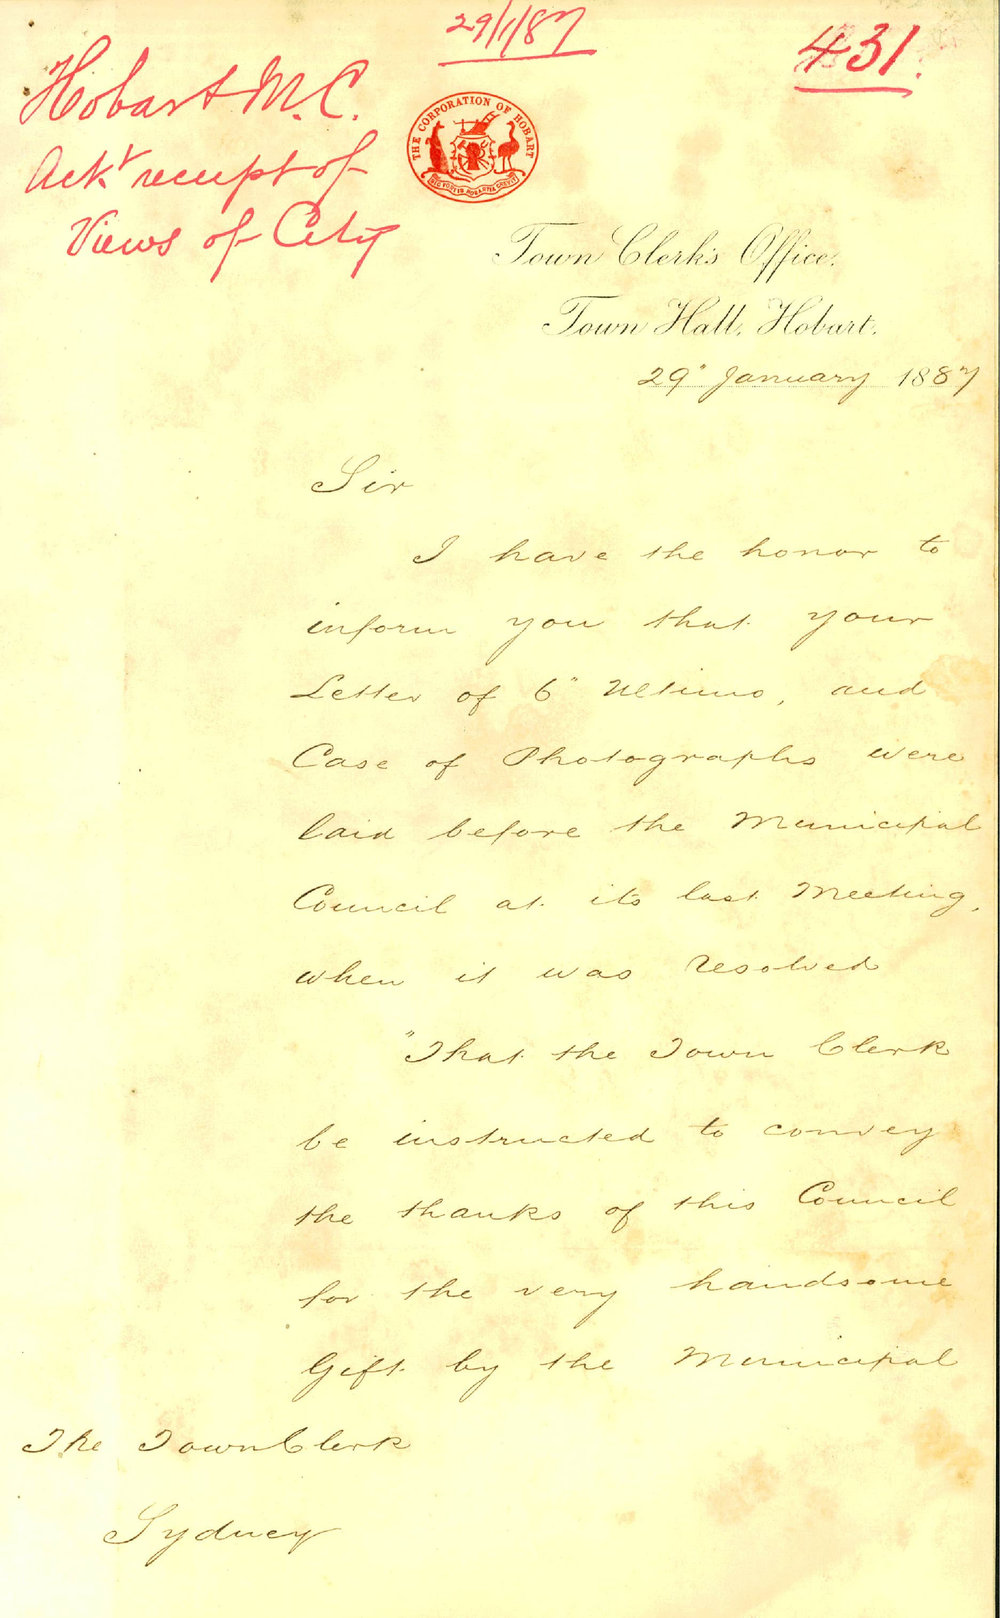 29/1/87
431.
Hobart M.C.
Ackt receipt of
Views of City
THE CORPORATION OF HOBART
SIC FORTIS HOBARTIA CREVIT
Town Clerk's Office.
Town Hall. Hobart.
29" January 1887
Sir
I have the honor to
inform you that your
Letter of 6" Ultimo, and
Case of Photographs were
laid before the Municipal
Council at its last Meeting,
when it was resolved
"That the Town Clerk
be instructed to convey
the thanks of this Council
for the very handsome
Gift by the Municipal
The Town Clerk
Sydney